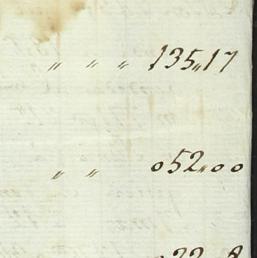 " " " 135,,17
" " 052,,00